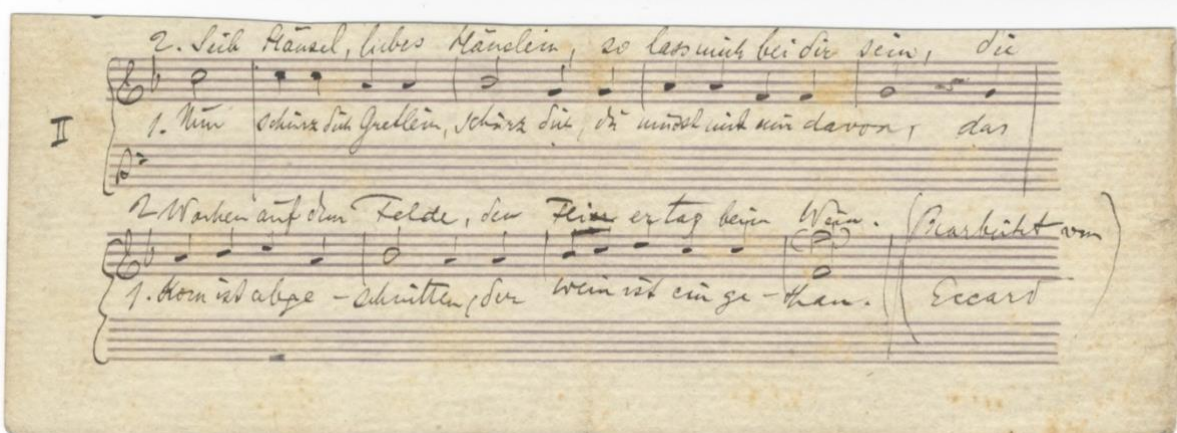 2. Sieh Hänsel, liebes Hänslein, so lass mich bei dir sein, die
II
1. Nun schürz dich Gretlein, schürz dich, du musst mit mir davon, das
2 Wochen auf dem Felde, den Feiertag beim Wein. (Bearbeitet von
1. Korn ist abge - schnitten, der Wein ist ein ge - than. Eccard)